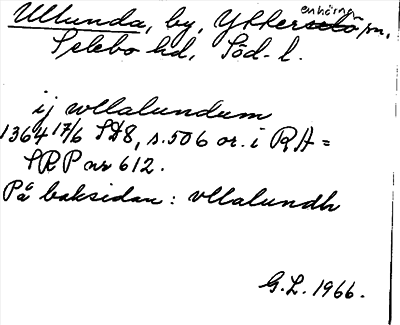 Ullunda, by, Ytterenhörna sn,
Selebo hd, Söd. l.
ij wllalundum
1364 17/6 SD8, s. 506 or. i RA =
SRP nr 612.
På baksidan: vllalundh
G.L. 1966.